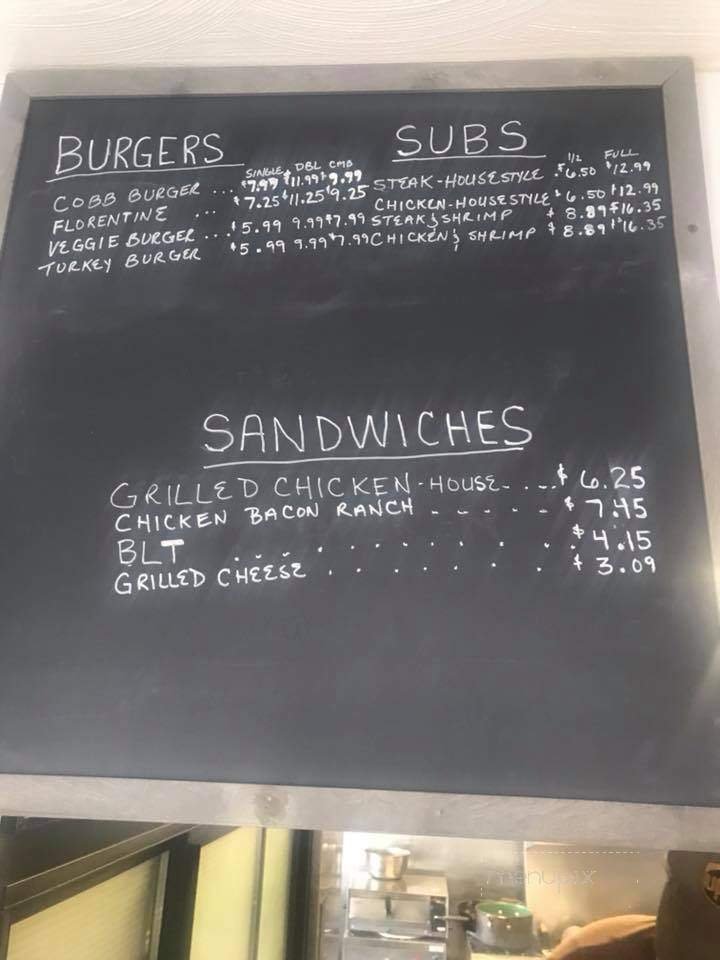 BURGERS
SINGLE DBL CMB
COBB BURGER ... $7.99 $11.99 $9.99
FLORENTINE ... $7.25 $11.25 $9.25
VEGGIE BURGER ... $5.99 9.99 $7.99
TURKEY BURGER $5.99 9.99 $7.99
SUBS
1/2 FULL
STEAK-HOUSESTYLE $6.50 $12.99
CHICKEN-HOUSESTYLE $6.50 $12.99
STEAK & SHRIMP $8.89 $16.35
CHICKEN & SHRIMP $8.89 $16.35
SANDWICHES
GRILLED CHICKEN-HOUSE- ... $6.25
CHICKEN BACON RANCH - - - - - $7.45
BLT . . . . . . . . . . $4.15
GRILLED CHEESE . . . . . . $3.09
menupix